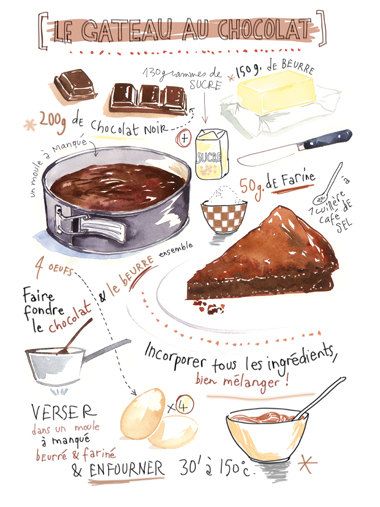 [LE GATEAU AU CHOCOLAT]
130 grammes de
SUCRE
*150g. de BEURRE
*200g de chocolat NOIR
+
un moule à manqué
SUCRE
50g. de Farine
1 cuillère à
café DE
SEL
4 oeufs
Faire
fondre
le chocolat & le BEURRE ensemble
Incorporer tous les ingrédients,
bien mélanger !
x4
VERSER
dans un moule
à manqué
beurré & fariné
& ENFOURNER 30' à 150°c.